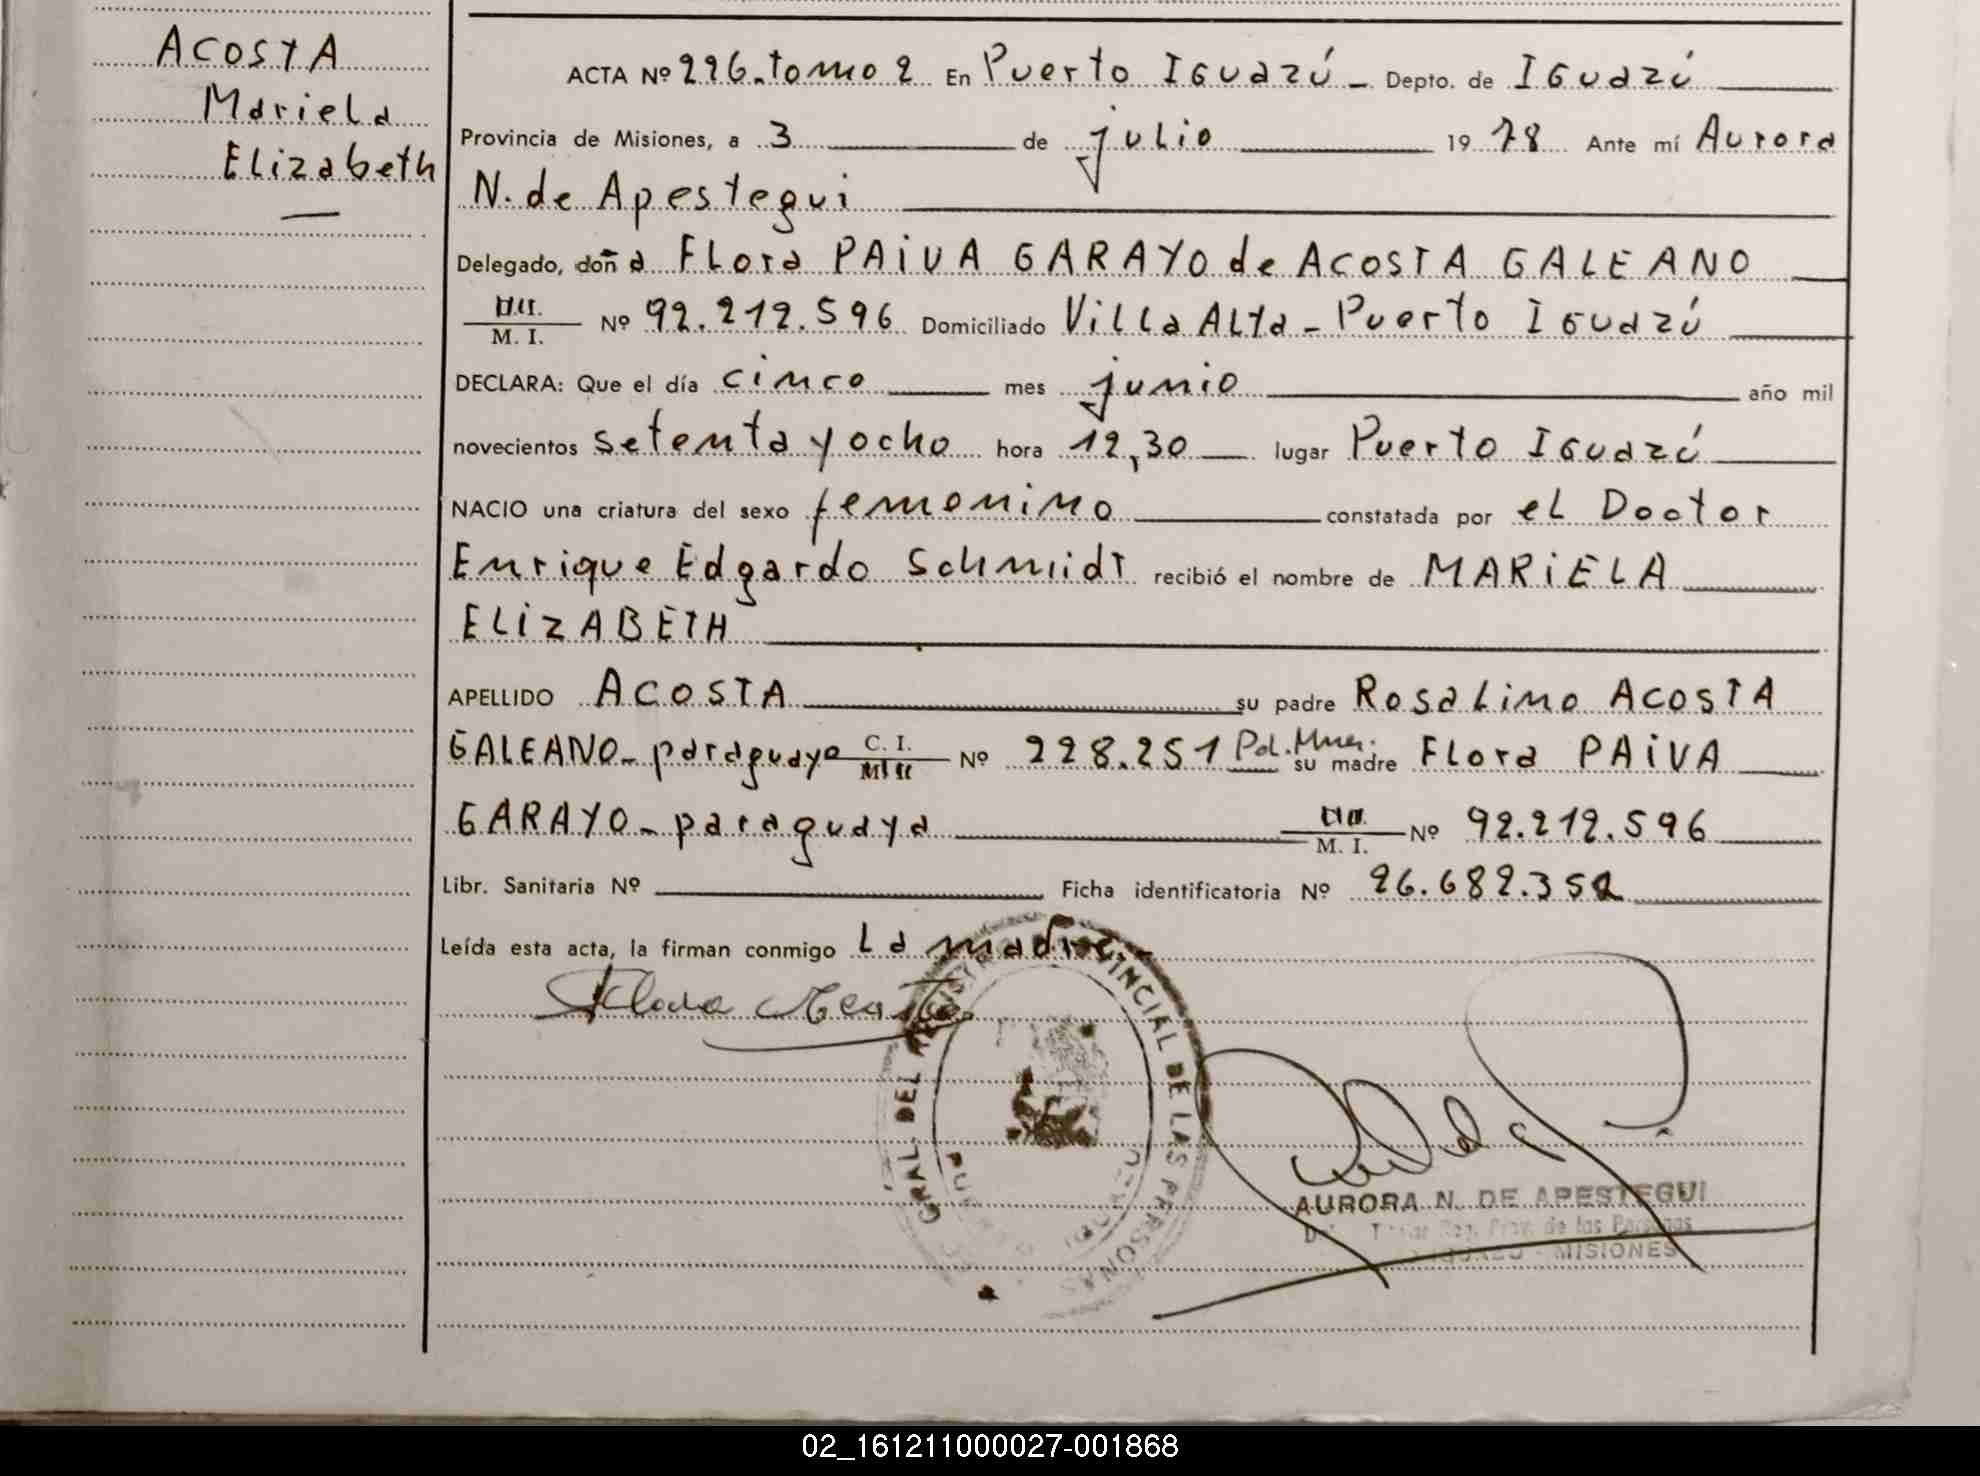 ACOSTA
Mariela
Elizabeth
ACTA Nº 226 - tomo 2 En Puerto Iguazú - Depto. de Iguazú
Provincia de Misiones, a 3 de julio 1978 Ante mí Aurora
N. de Apestegui
Delegado, doña Flora PAIVA GARAYO de ACOSTA GALEANO
M. I. Nº 92.212.596 Domiciliado Villa Alta - Puerto Iguazú
DECLARA: Que el día cinco mes junio año mil
novecientos setenta y ocho hora 12,30 lugar Puerto Iguazú
NACIO una criatura del sexo femenino constatada por el Doctor
Enrique Edgardo Schmidt recibió el nombre de MARIELA
ELIZABETH
APELLIDO ACOSTA su padre Rosalino ACOSTA
GALEANO - paraguayo C. I. Nº 228.251 Pol. Mnes. su madre Flora PAIVA
GARAYO - paraguaya M. I. Nº 92.212.596
Libr. Sanitaria Nº Ficha identificatoria Nº 26.682.352
Leída esta acta, la firman conmigo La madre.-
Flora Acosta
GRAL. DEL REGISTRO PROVINCIAL DE LAS PERSONAS
AURORA N. DE APESTEGUI
Reg. Prov. de las Personas
IGUAZU - MISIONES
02_161211000027-001868